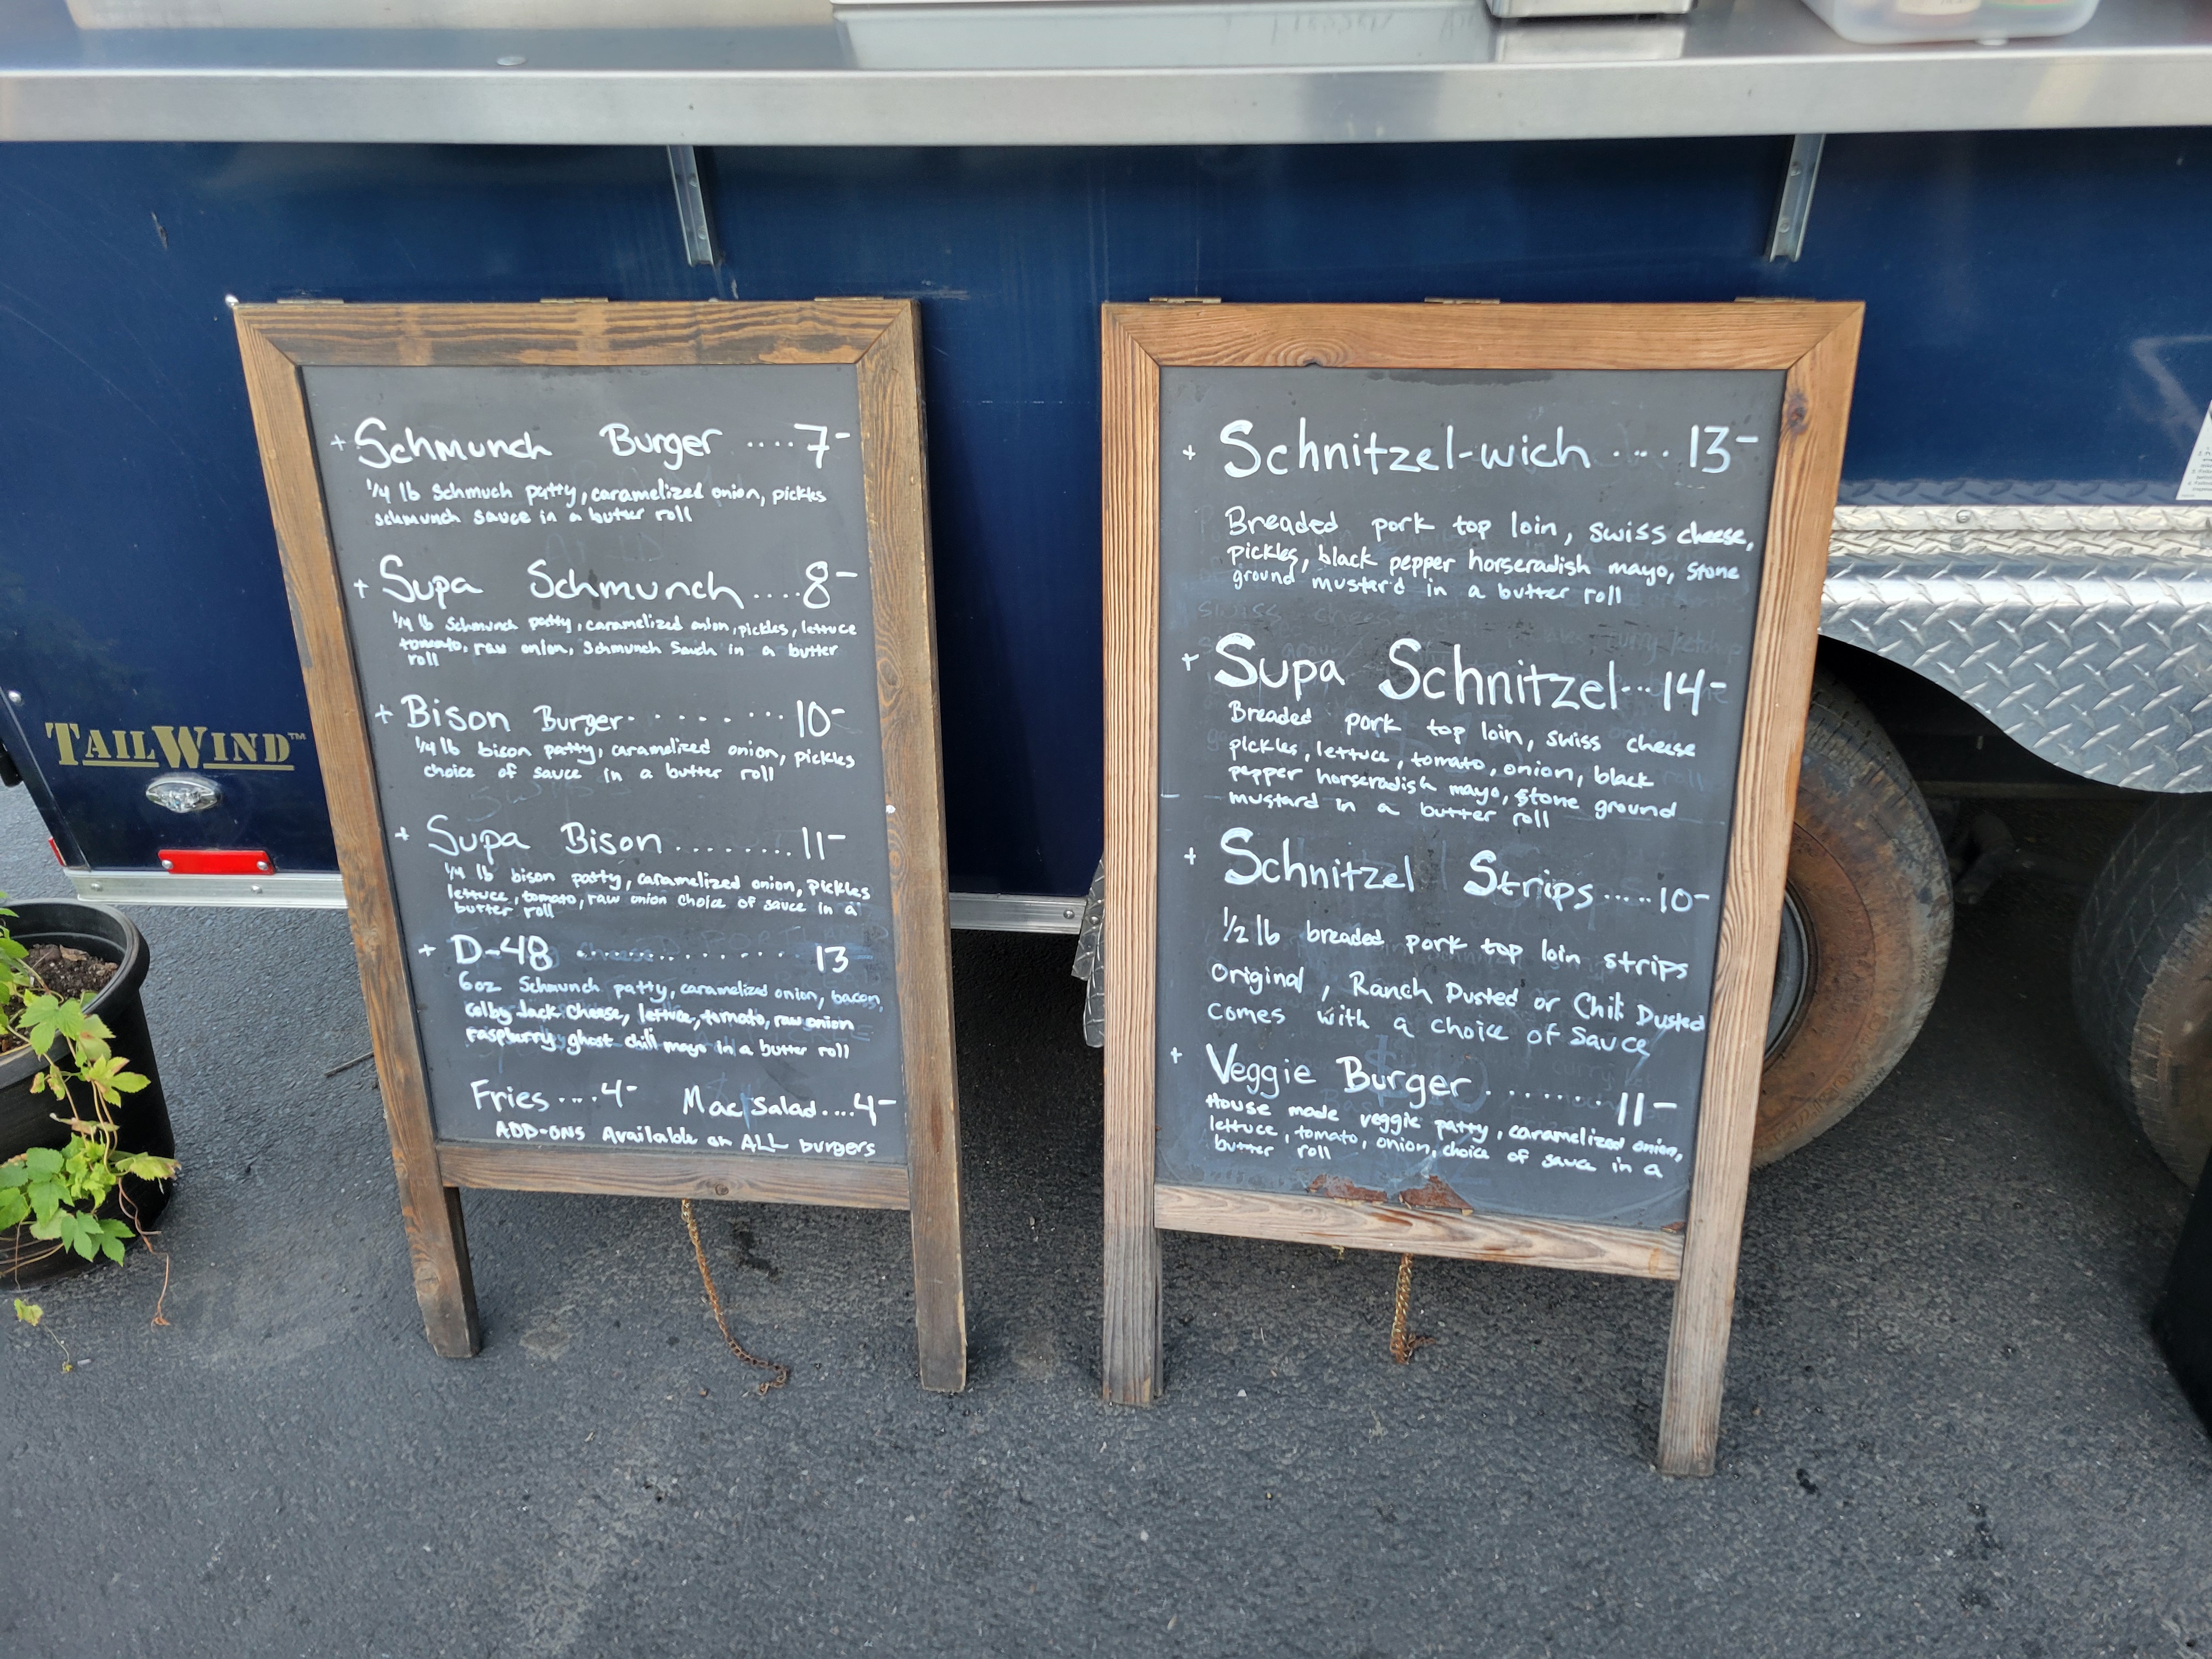 TAILWIND™
+ Schmunch Burger ....7-
1/4 lb Schmuch patty, caramelized onion, pickles
schmunch sauce in a butter roll
+ Supa Schmunch....8-
1/4 lb Schmunch patty, caramelized onion, pickles, lettuce
tomato, raw onion, Schmunch Sauch in a butter
roll
+ Bison Burger........10-
1/4 lb bison patty, caramelized onion, pickles
choice of sauce in a butter roll
+ Supa Bison.........11-
1/4 lb bison patty, caramelized onion, pickles
lettuce, tomato, raw onion choice of sauce in a
butter roll
+ D-48 ............. 13
6oz Schmunch patty, caramelized onion, bacon,
colby Jack Cheese, lettuce, tomato, raw onion
raspburry ghost chili mayo in a butter roll
Fries....4- Mac Salad....4-
ADD-ONS Available on ALL burgers
+ Schnitzel-wich .... 13-
Breaded pork top loin, swiss cheese,
pickles, black pepper horseradish mayo, stone
ground mustard in a butter roll
+ Supa Schnitzel...14-
Breaded pork top loin, swiss cheese
pickles, lettuce, tomato, onion, black
pepper horseradish mayo, stone ground
mustard in a butter roll
+ Schnitzel Strips.....10-
1/2 lb breaded pork top loin strips
Original, Ranch Dusted or Chili Dusted
comes with a choice of Sauce
+ Veggie Burger........11-
House made veggie patty, caramelized onion,
lettuce, tomato, onion, choice of sauce in a
butter roll